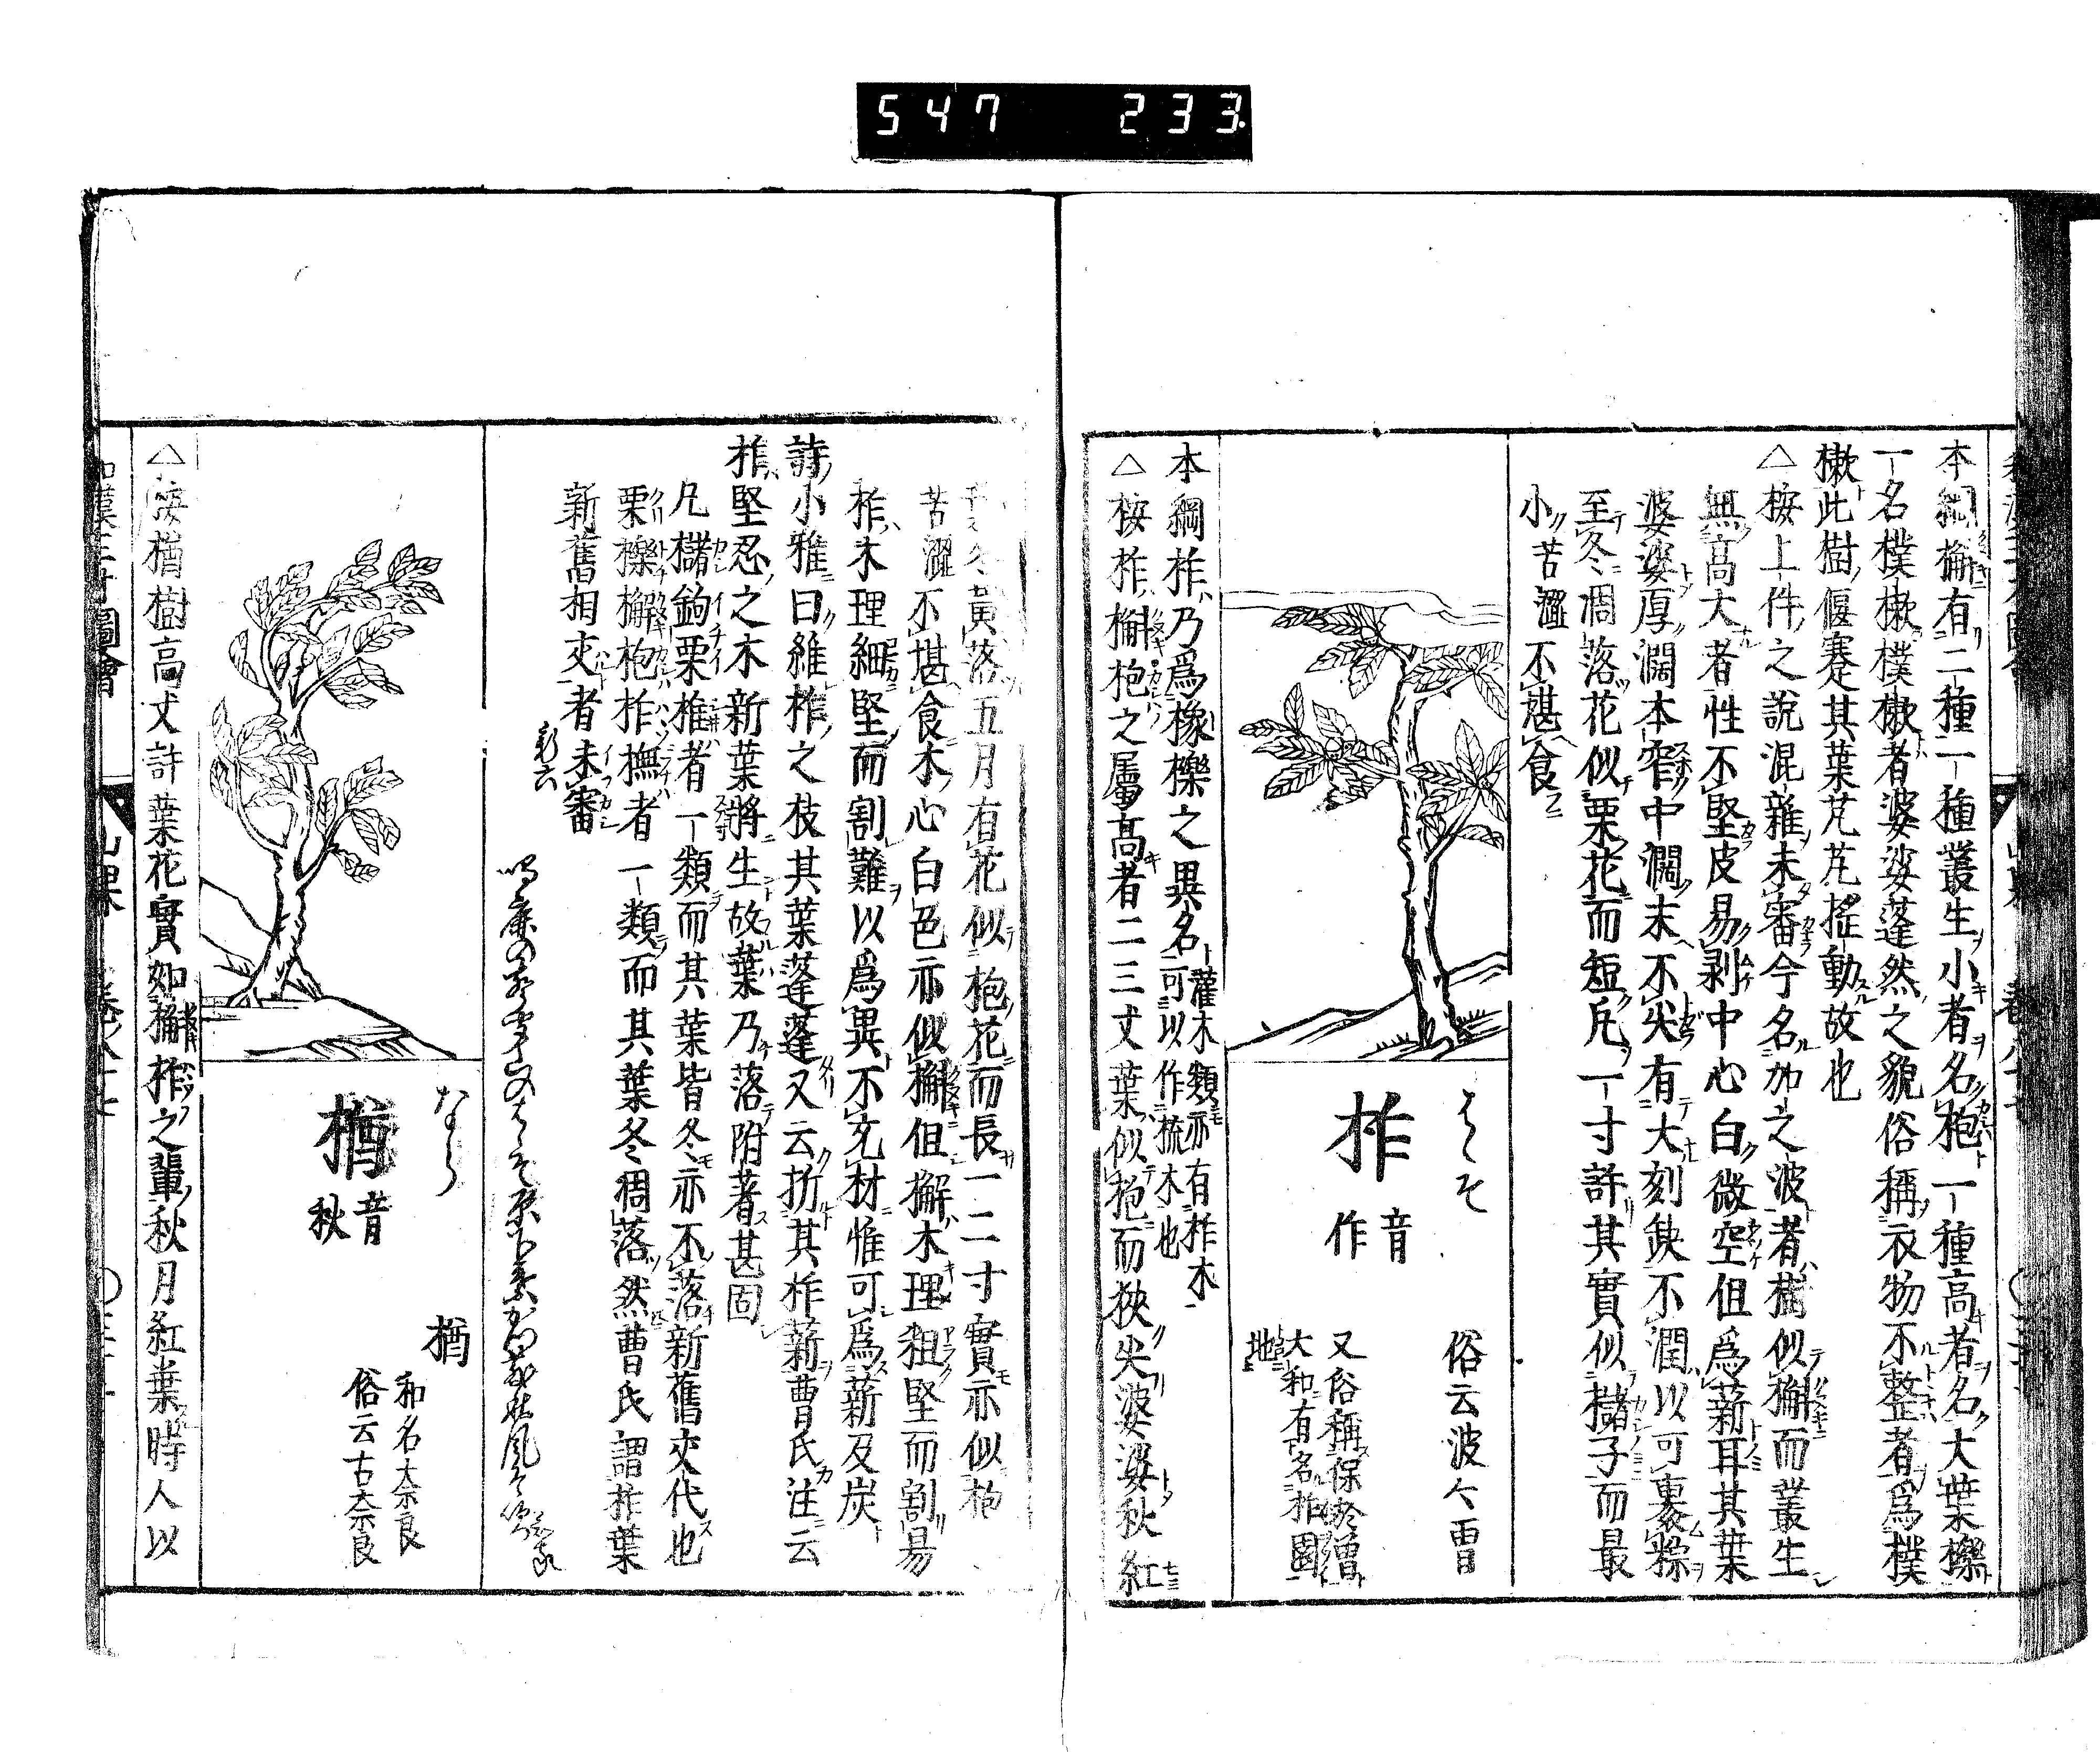 547 233
本綱槲有二種一種叢生小者名枹一種高者名大葉櫟
一名樸樕樸樕者婆娑蓬然之貌俗稱衣物不整者爲樸
樕此樹偃蹇其葉芃芃揺動故也
△桉上件之說混雜未審今名加之波者樹似槲而叢生
無高大者性不堅皮易剥中心白微空但爲薪耳其葉
婆娑厚濶本窄中濶末不尖有大刻缺不潤以可裹粽
至冬凋落花似栗花而短凡一寸許其實似櫧子而最
小苦澀不堪食
はゝそ
柞
音作
俗云波々曽
又俗稱保曽
大和有名柞園
地
本綱柞乃爲橡櫟之異名
灌木類亦有柞木
可以作梳木也
△桉柞槲枹之屬高者二三丈葉似枹而狹尖婆娑秋紅
冬黃落五月有花似枹花而長一二寸實亦似枹
苦澀不堪食木心白色亦似槲但槲木理粗堅而割易
柞木理細堅而割難以爲異不充材惟可爲薪及炭
詩小雅曰維柞之枝其葉蓬蓬又云析其柞薪曹氏注云
柞堅忍之木新葉將生故葉乃落附著甚固
凡櫧鉤栗椎者一類而其葉皆冬亦不落新舊交代也
栗櫟槲枹柞橅者一類而其葉冬凋落然曹氏謂柞葉
新舊相夾者未審
新六
なら
楢
音秋
楢
和名奈良
俗云古奈良
△桉楢樹高丈許葉花實如槲柞之輩秋月紅葉時人以
和漢三才圖會
山果
卷八十七